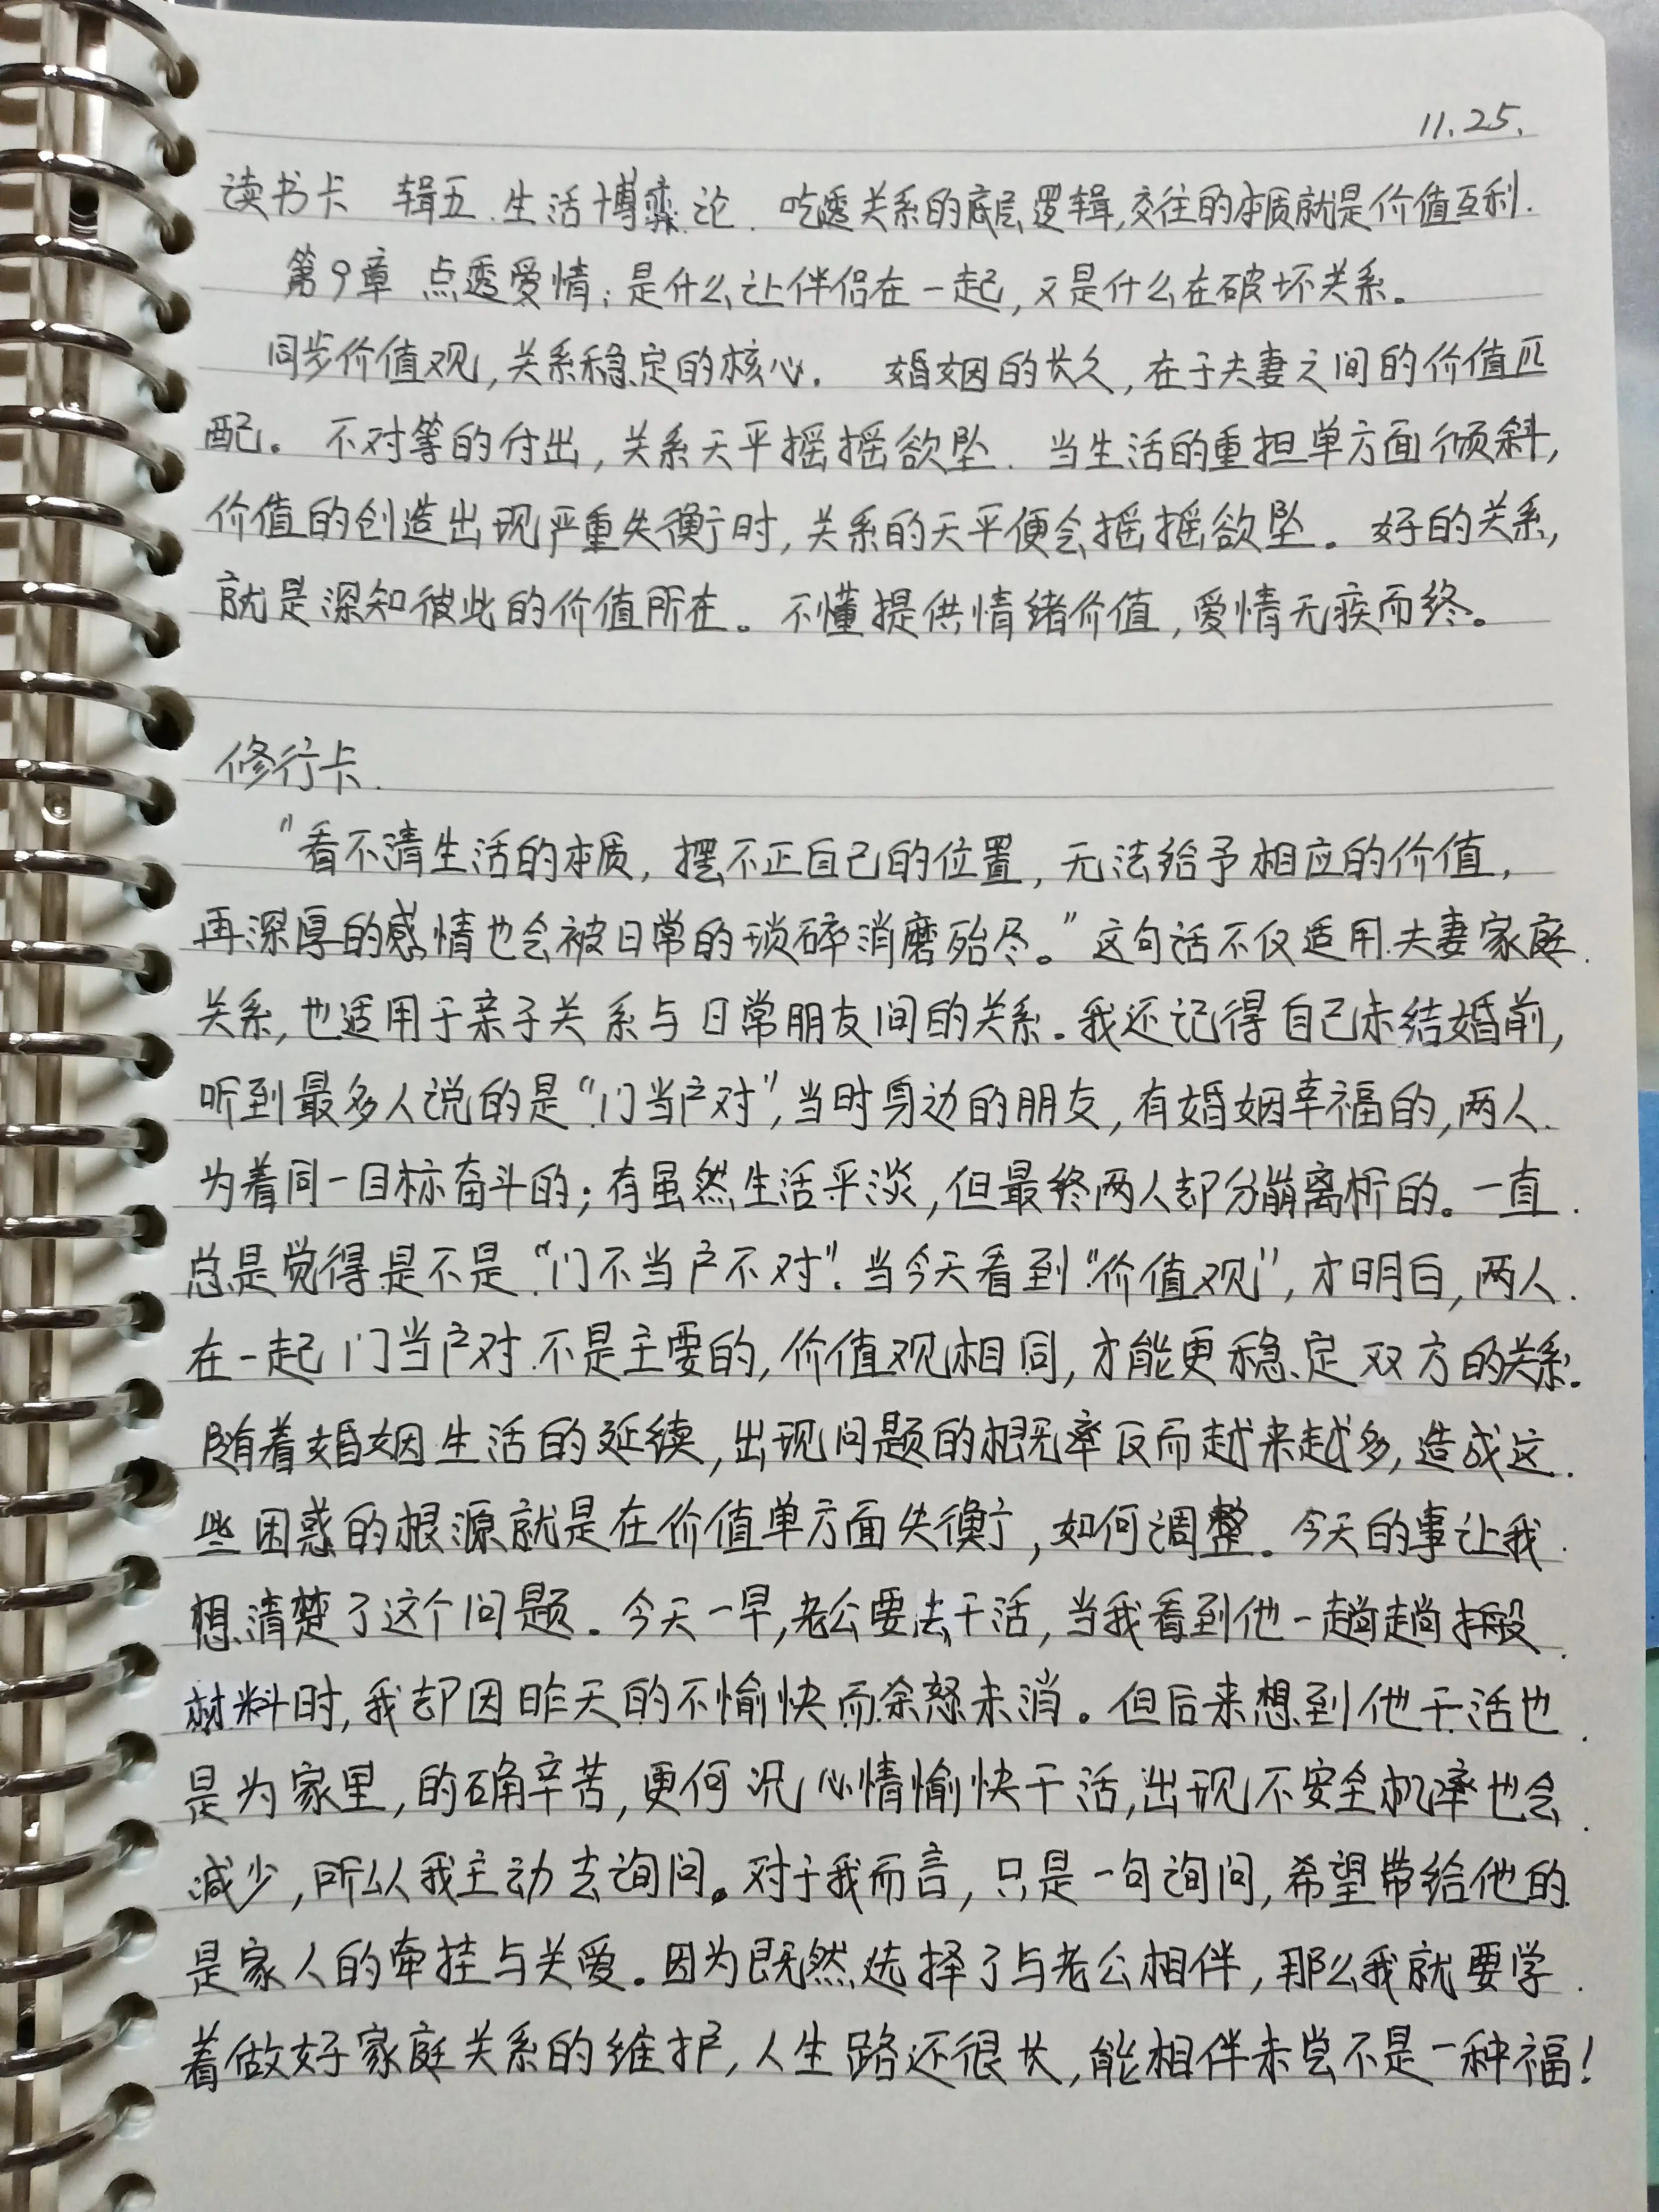 11.25.
读书卡 辑五.生活博弈论. 吃透关系的底层逻辑,交往的本质就是价值互利.
第9章 点透爱情:是什么让伴侣在一起,又是什么在破坏关系。
同步价值观,关系稳定的核心。 婚姻的长久,在于夫妻之间的价值匹
配。不对等的付出,关系天平摇摇欲坠.当生活的重担单方面倾斜,
价值的创造出现严重失衡时,关系的天平便会摇摇欲坠。好的关系,
就是深知彼此的价值所在。不懂提供情绪价值,爱情无疾而终。
修行卡.
"看不清生活的本质,摆不正自己的位置,无法给予相应的价值,
再深厚的感情也会被日常的琐碎消磨殆尽。"这句话不仅适用夫妻家庭
关系,也适用于亲子关系与日常朋友间的关系。我还记得自己未结婚前,
听到最多人说的是"门当户对",当时身边的朋友,有婚姻幸福的,两人
为着同一目标奋斗的;有虽然生活平淡,但最终两人却分崩离析的。一直
总是觉得是不是"门不当户不对".当今天看到"价值观",才明白,两人
在一起门当户对不是主要的,价值观相同,才能更稳定双方的关系.
随着婚姻生活的延续,出现问题的概率反而越来越多,造成这
些困惑的根源就是在价值单方面失衡,如何调整。今天的事让我
想清楚了这个问题。今天一早,老公要去干活,当我看到他一趟趟搬
材料时,我却因昨天的不愉快而余怒未消。但后来想到他干活也
是为家里,的确辛苦,更何况心情愉快干活,出现不安全机率也会
减少,所以我主动去询问。对于我而言,只是一句询问,希望带给他的
是家人的牵挂与关爱。因为既然选择了与老公相伴,那么我就要学
着做好家庭关系的维护,人生路还很长,能相伴未尝不是一种福!